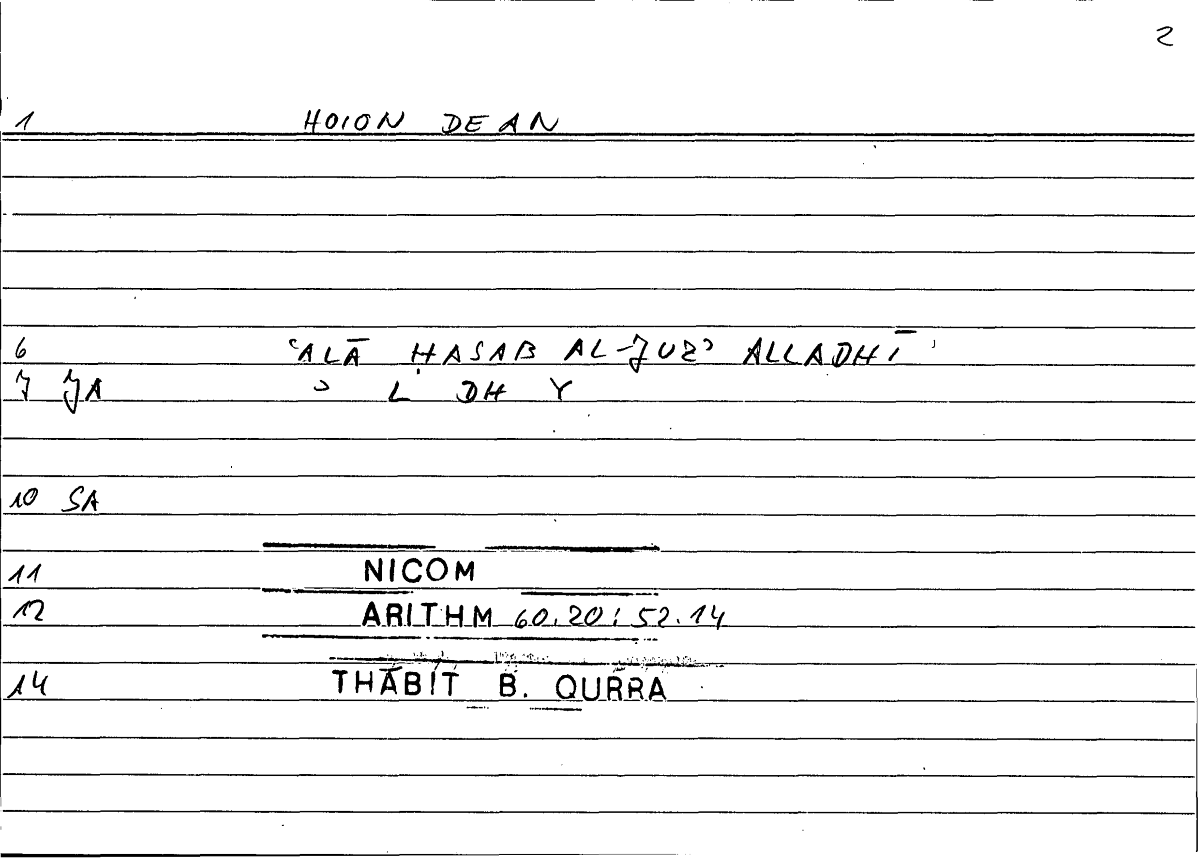 2
1 HOION DE AN
6 ʿALĀ ḤASAB AL-JUZʾ ALLADHĪ
7 JA ʾ L DH Y
10 SA
11 NICOM
12 ARITHM 60.20; 52.14
14 THĀBIT B. QURRA